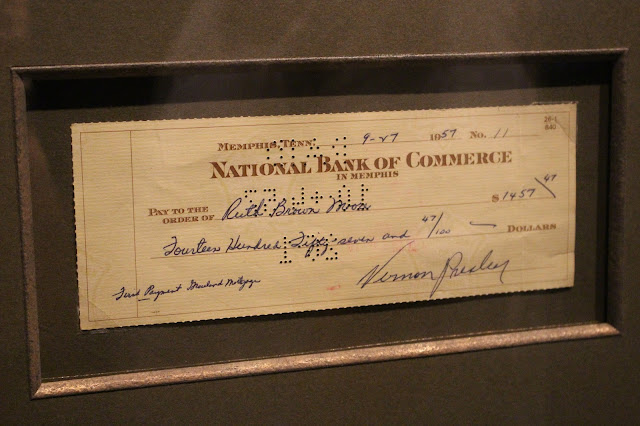 26-1
840
MEMPHIS, TENN. 9-27 1957 NO. 11
NATIONAL BANK OF COMMERCE
IN MEMPHIS
PAY TO THE
ORDER OF Ruth Brown Moore $1457 47
Fourteen Hundred Fifty seven and 47/100 — DOLLARS
First Payment Graceland Mortgage
Vernon Presley